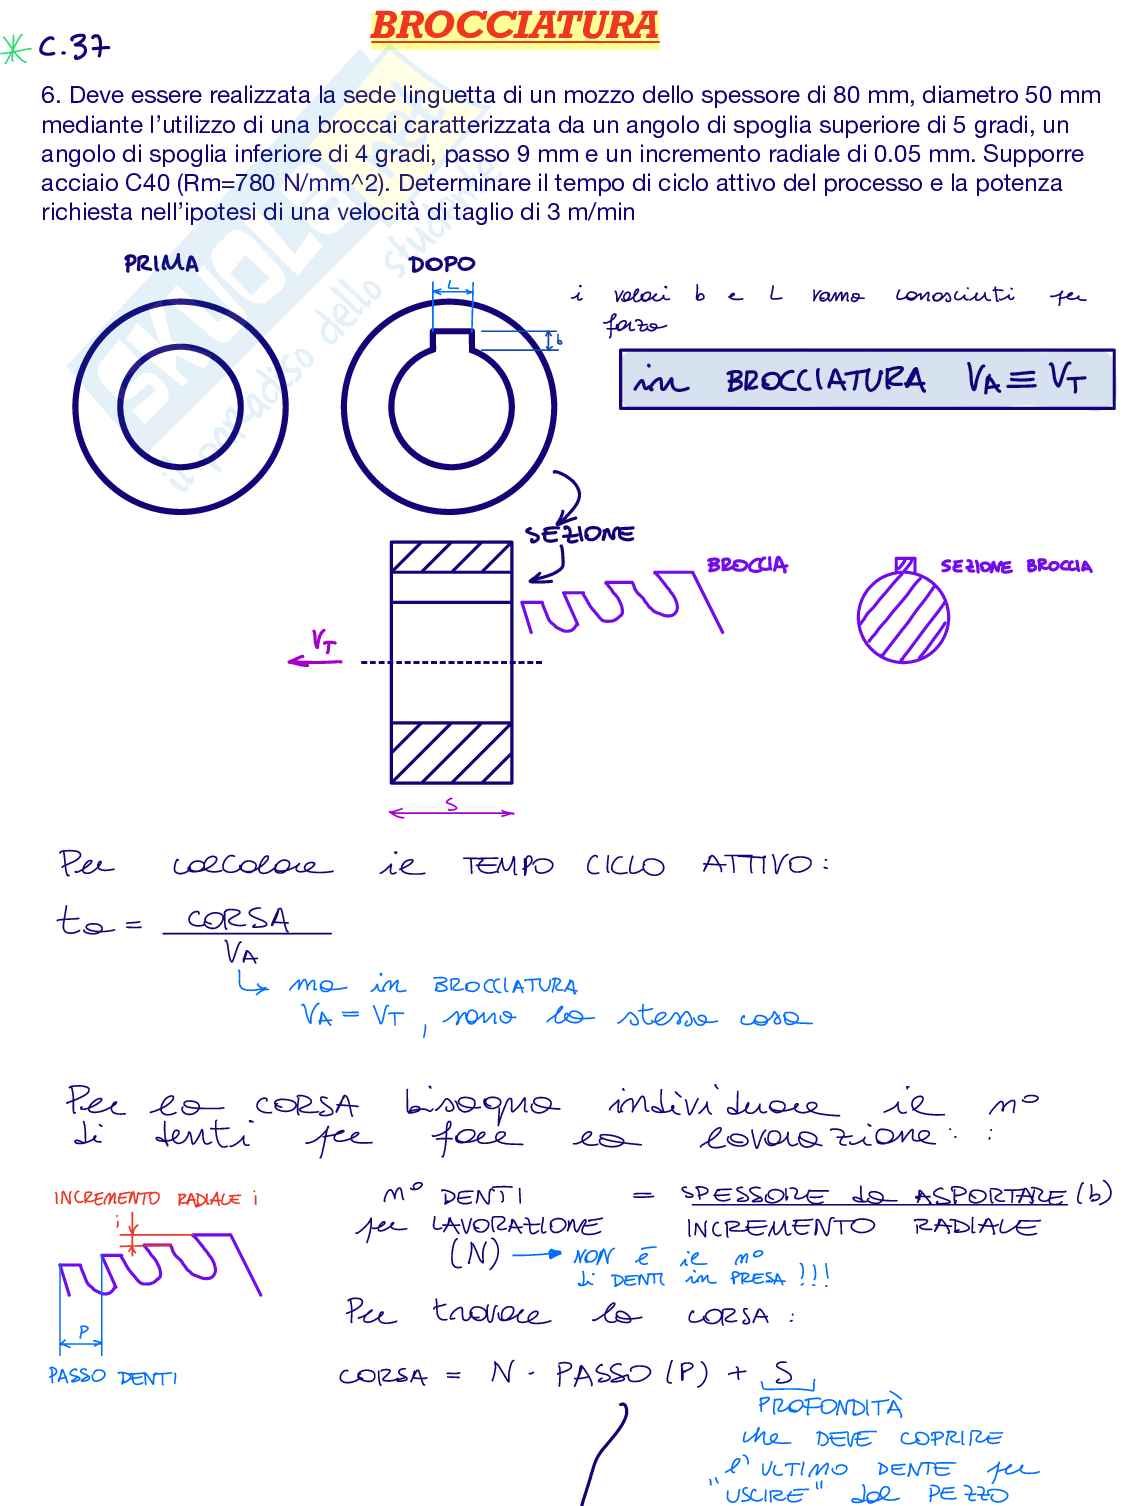 BROCCIATURA
* C.37
6. Deve essere realizzata la sede linguetta di un mozzo dello spessore di 80 mm, diametro 50 mm
mediante l'utilizzo di una broccai caratterizzata da un angolo di spoglia superiore di 5 gradi, un
angolo di spoglia inferiore di 4 gradi, passo 9 mm e un incremento radiale di 0.05 mm. Supporre
acciaio C40 (Rm=780 N/mm^2). Determinare il tempo di ciclo attivo del processo e la potenza
richiesta nell'ipotesi di una velocità di taglio di 3 m/min
SKUOLA.net
il paradiso dello studente
PRIMA
DOPO
L
b
i valori b e L vanno conosciuti per
forza
in BROCCIATURA VA ≡ VT
SEZIONE
BROCCIA
SEZIONE BROCCIA
VT
S
Per calcolare il TEMPO CICLO ATTIVO:
ta = CORSA
VA
ma in BROCCIATURA
VA = VT, sono la stessa cosa
Per la CORSA bisogna individuare il n°
di denti per fare la lavorazione:
INCREMENTO RADIALE i
i
P
PASSO DENTI
n° DENTI = SPESSORE da ASPORTARE (b)
per LAVORAZIONE INCREMENTO RADIALE
(N) → NON È il n°
di DENTI in PRESA !!!
Per trovare la CORSA:
CORSA = N · PASSO (P) + S
PROFONDITÀ
che DEVE COPRIRE
l'ULTIMO DENTE per
"USCIRE" dal PEZZO